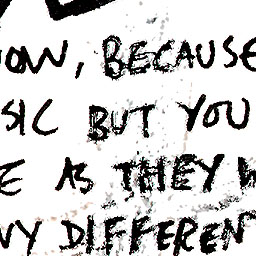 NOW, BECAUSE
SIC BUT YOU
E AS THEY W
NY DIFFERENT